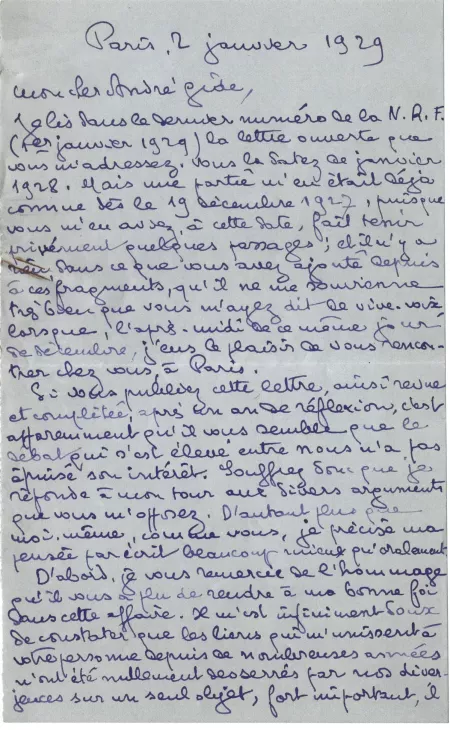 Paris, 2 janvier 1929
mon cher André gide,
Je lis dans le dernier numéro de la N. R. F.
(1er janvier 1929) la lettre ouverte que
vous m'adressez. Vous la datez de janvier
1928. Mais une partie m'en était déjà
connue dès le 19 décembre 1927, puisque
vous m'en aviez, à cette date, fait tenir
privément quelques passages ; et il n'y a
rien, dans ce que vous avez ajouté depuis
à ces fragments, qu'il ne me souvienne
très bien que vous m'ayez dit de vive-voix
lorsque, l'après-midi de ce même jour
de décembre, j'eus le plaisir de vous rencon-
trer chez vous, à Paris.
Si vous publiez cette lettre, ainsi revue
et complétée, après un an de réflexion, c'est
apparemment qu'il vous semble que le
débat qui s'est élevé entre nous n'a pas
épuisé son intérêt. Souffrez donc que je
réponde à mon tour aux divers arguments
que vous m'opposez. D'autant plus que
moi-même, comme vous, je précise ma
pensée par écrit beaucoup mieux qu'oralement.
D'abord, je vous remercie de l'hommage
qu'il vous a plu de rendre à ma bonne foi
dans cette affaire. Il m'est infiniment doux
de constater que les liens qui m'unissent à
votre personne depuis de nombreuses années
n'ont été nullement desserrés par nos diver-
gences sur un seul objet, fort important, il